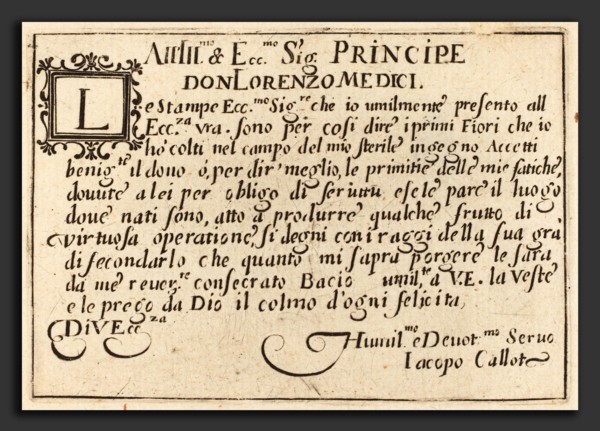 All Ill.mo & Ecc.mo Sig. PRINCIPE
DON LORENZO MEDICI.
Le Stampe Ecc.mo Sig.re che io umilmente presento all
Ecc.za vra. sono per cosi dire i primi Fiori che io
hò colti nel campo del mio sterile ingegno Accetti
benig.te il dono ó, per dir' meglio, le primitie delle mie fatiche,
douute a lei per obligo di seruitu e se le pare il luogo
doue nati sono, atto a produrre qualche frutto di
virtuosa operatione, si degni con i raggi della sua gra.
di fecondarlo che quanto mi sapra porgere le sara
da me reuer.te consecrato Bacio umil.te a V.E. la Veste
e le prego da Dio il colmo d'ogni felicita,
Di V Ecc.za
Humil.mo e Deuot.mo Seruo
Iacopo Callot